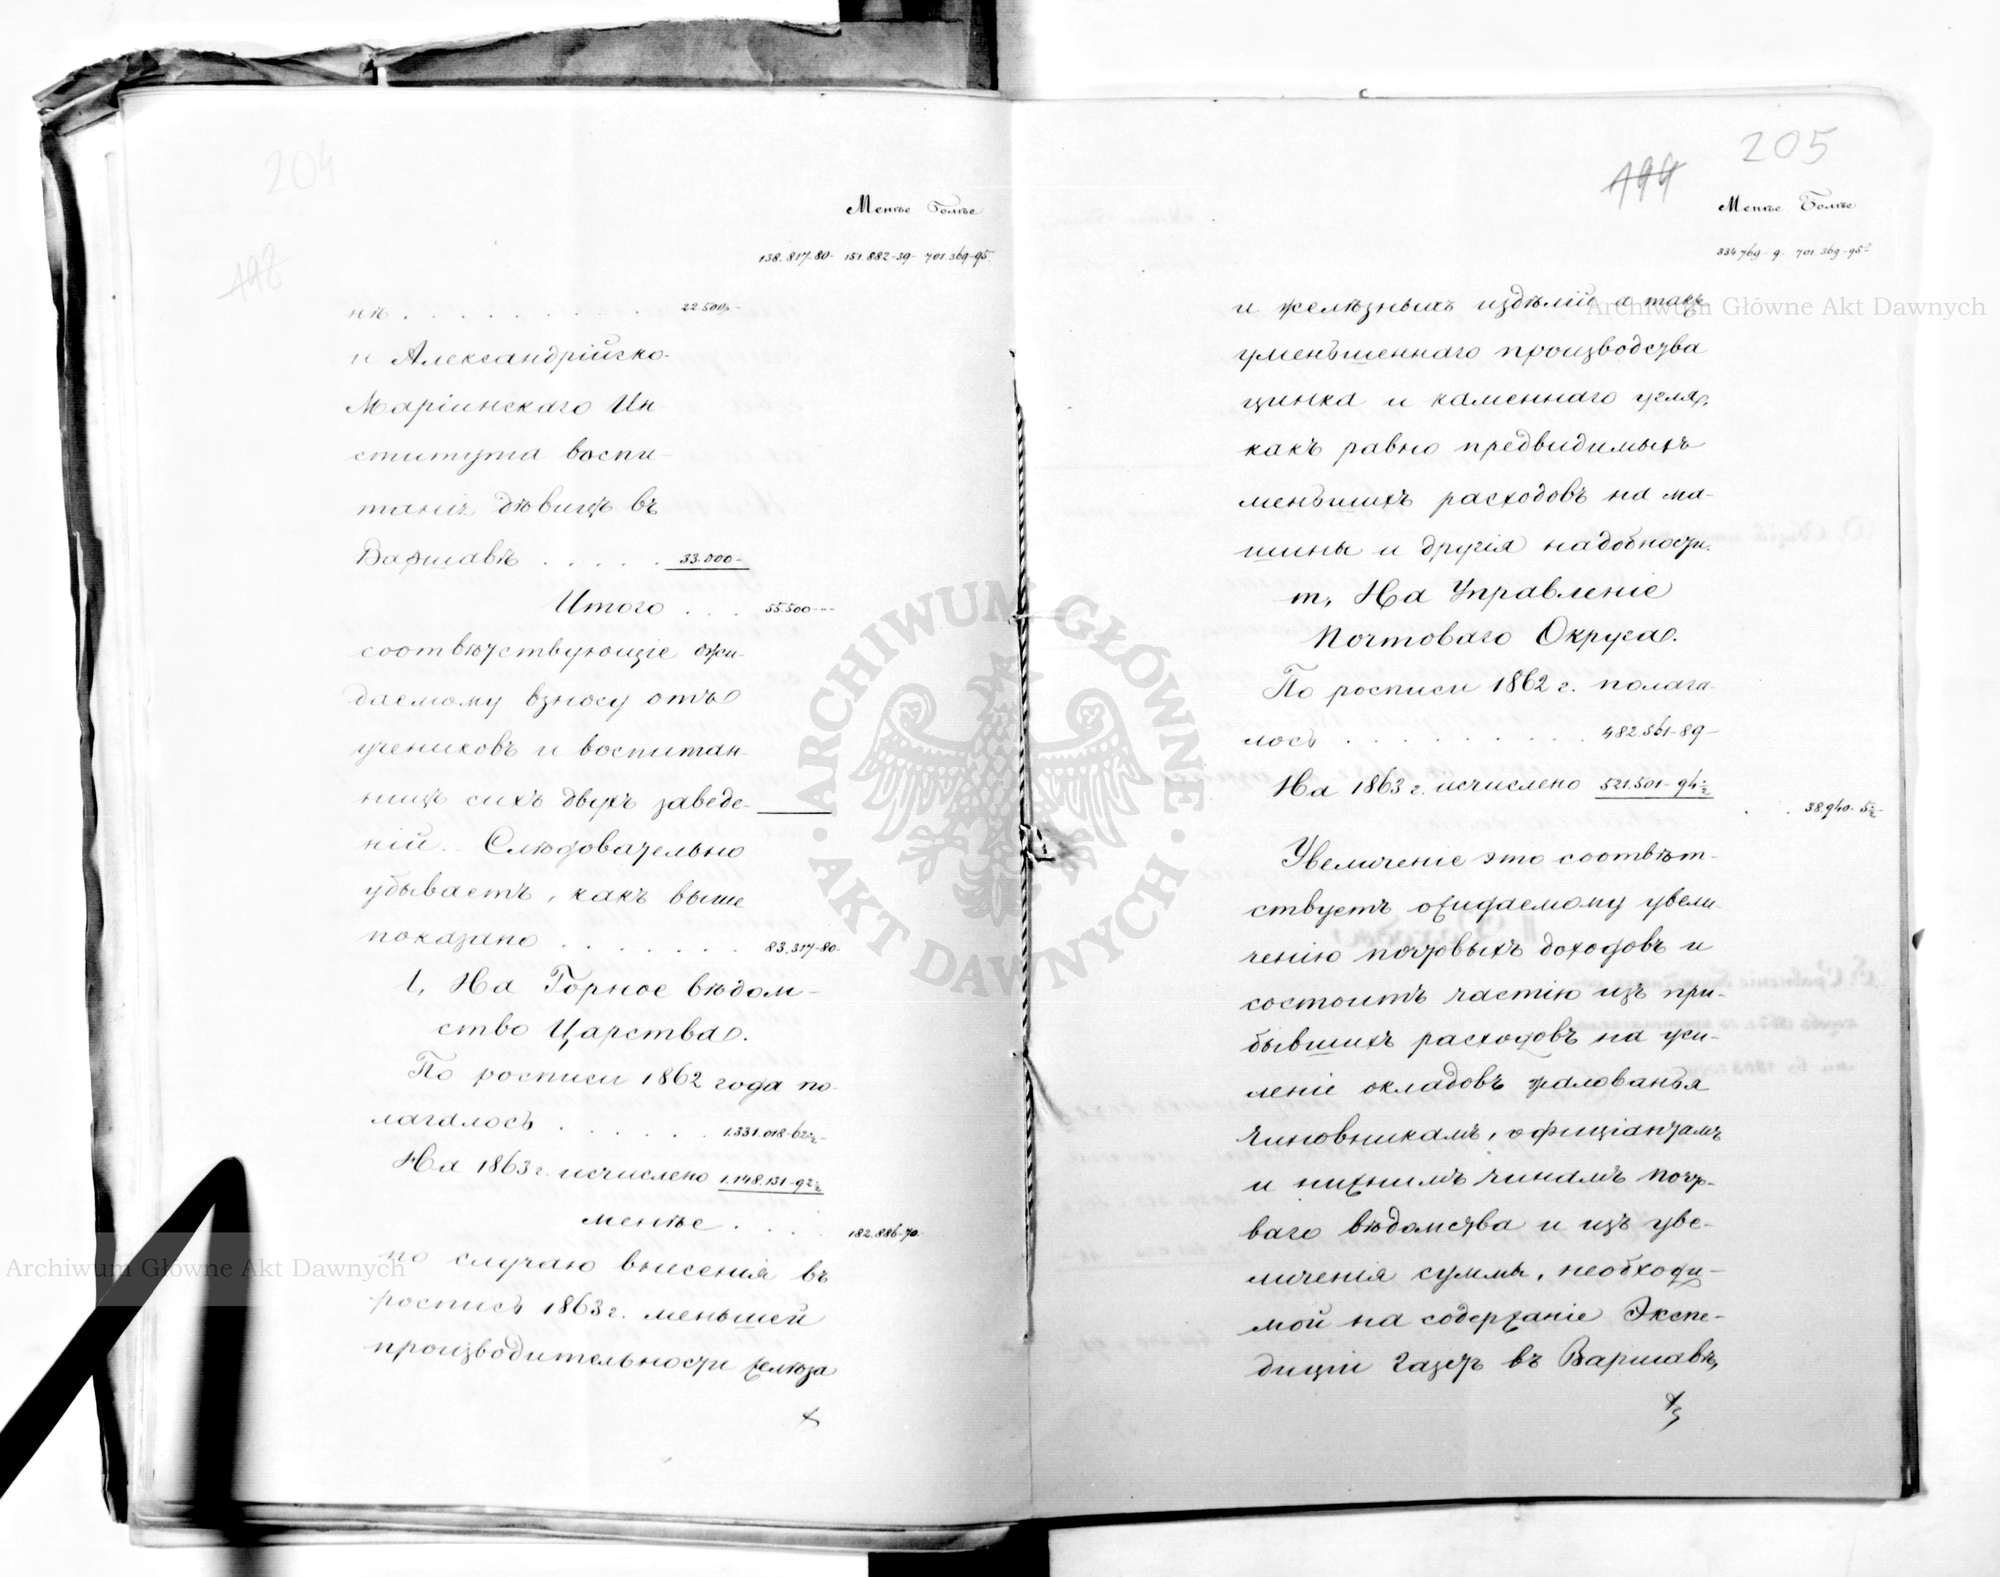 204
198
Менѣе Болѣе
138.817.80- 151.882-39- 701.369-95.
нѣ . . . . . . . . . . 22.500-
и Александрійско-
Маріинскаго Ин-
ститута воспи-
танія дѣвицъ въ
Варшавѣ . . . . . 33.000-
Итого . . . 55.500---
соотвѣтствующіе ожи-
даемому взносу отъ
учениковъ и воспитан-
ницъ сихъ двухъ заведе-
ній. Слѣдовательно
убываетъ, какъ выше
показано . . . . . . . 83.317-80.
l, На Горное вѣдом-
ство Царства.
По росписи 1862 года по-
лагалось . . . . . . 1.331.018-62½-
На 1863 г. исчислено 1.148.131-92½
менѣе . . . . 182.886-70-
по случаю внесенія въ
роспись 1863 г. меньшей
производительности желѣза
205
199
Менѣе Болѣе
334.769-9- 701.369-95-
и желѣзныхъ издѣлій а такж
уменьшеннаго производства
цинка и каменнаго угля,
какъ равно предвидимыхъ
меньшихъ расходовъ на ма-
шины и другія надобности.
m, На Управленіе
Почтоваго Округа.
По росписи 1862 г. полага-
лось . . . . . . . . . 482.561-89-
На 1863 г. исчислено 521.501-94½
. . 38.940-5½-
Увеличеніе это соотвѣт-
ствуетъ ожидаемому увели-
ченію почтовыхъ доходовъ и
состоитъ частію изъ при-
бывшихъ расходовъ на уси-
леніе окладовъ жалованья
чиновникамъ, офиціантамъ
и нижнимъ чинамъ Почт-
ваго вѣдомства и изъ уве-
личенія суммы, необходи-
мой на содержаніе Экспе-
диціи Газетъ въ Варшавѣ,
Archiwum Główne Akt Dawnych
Archiwum Główne Akt Dawnych
ARCHIWUM GŁÓWNE · AKT DAWNYCH ·